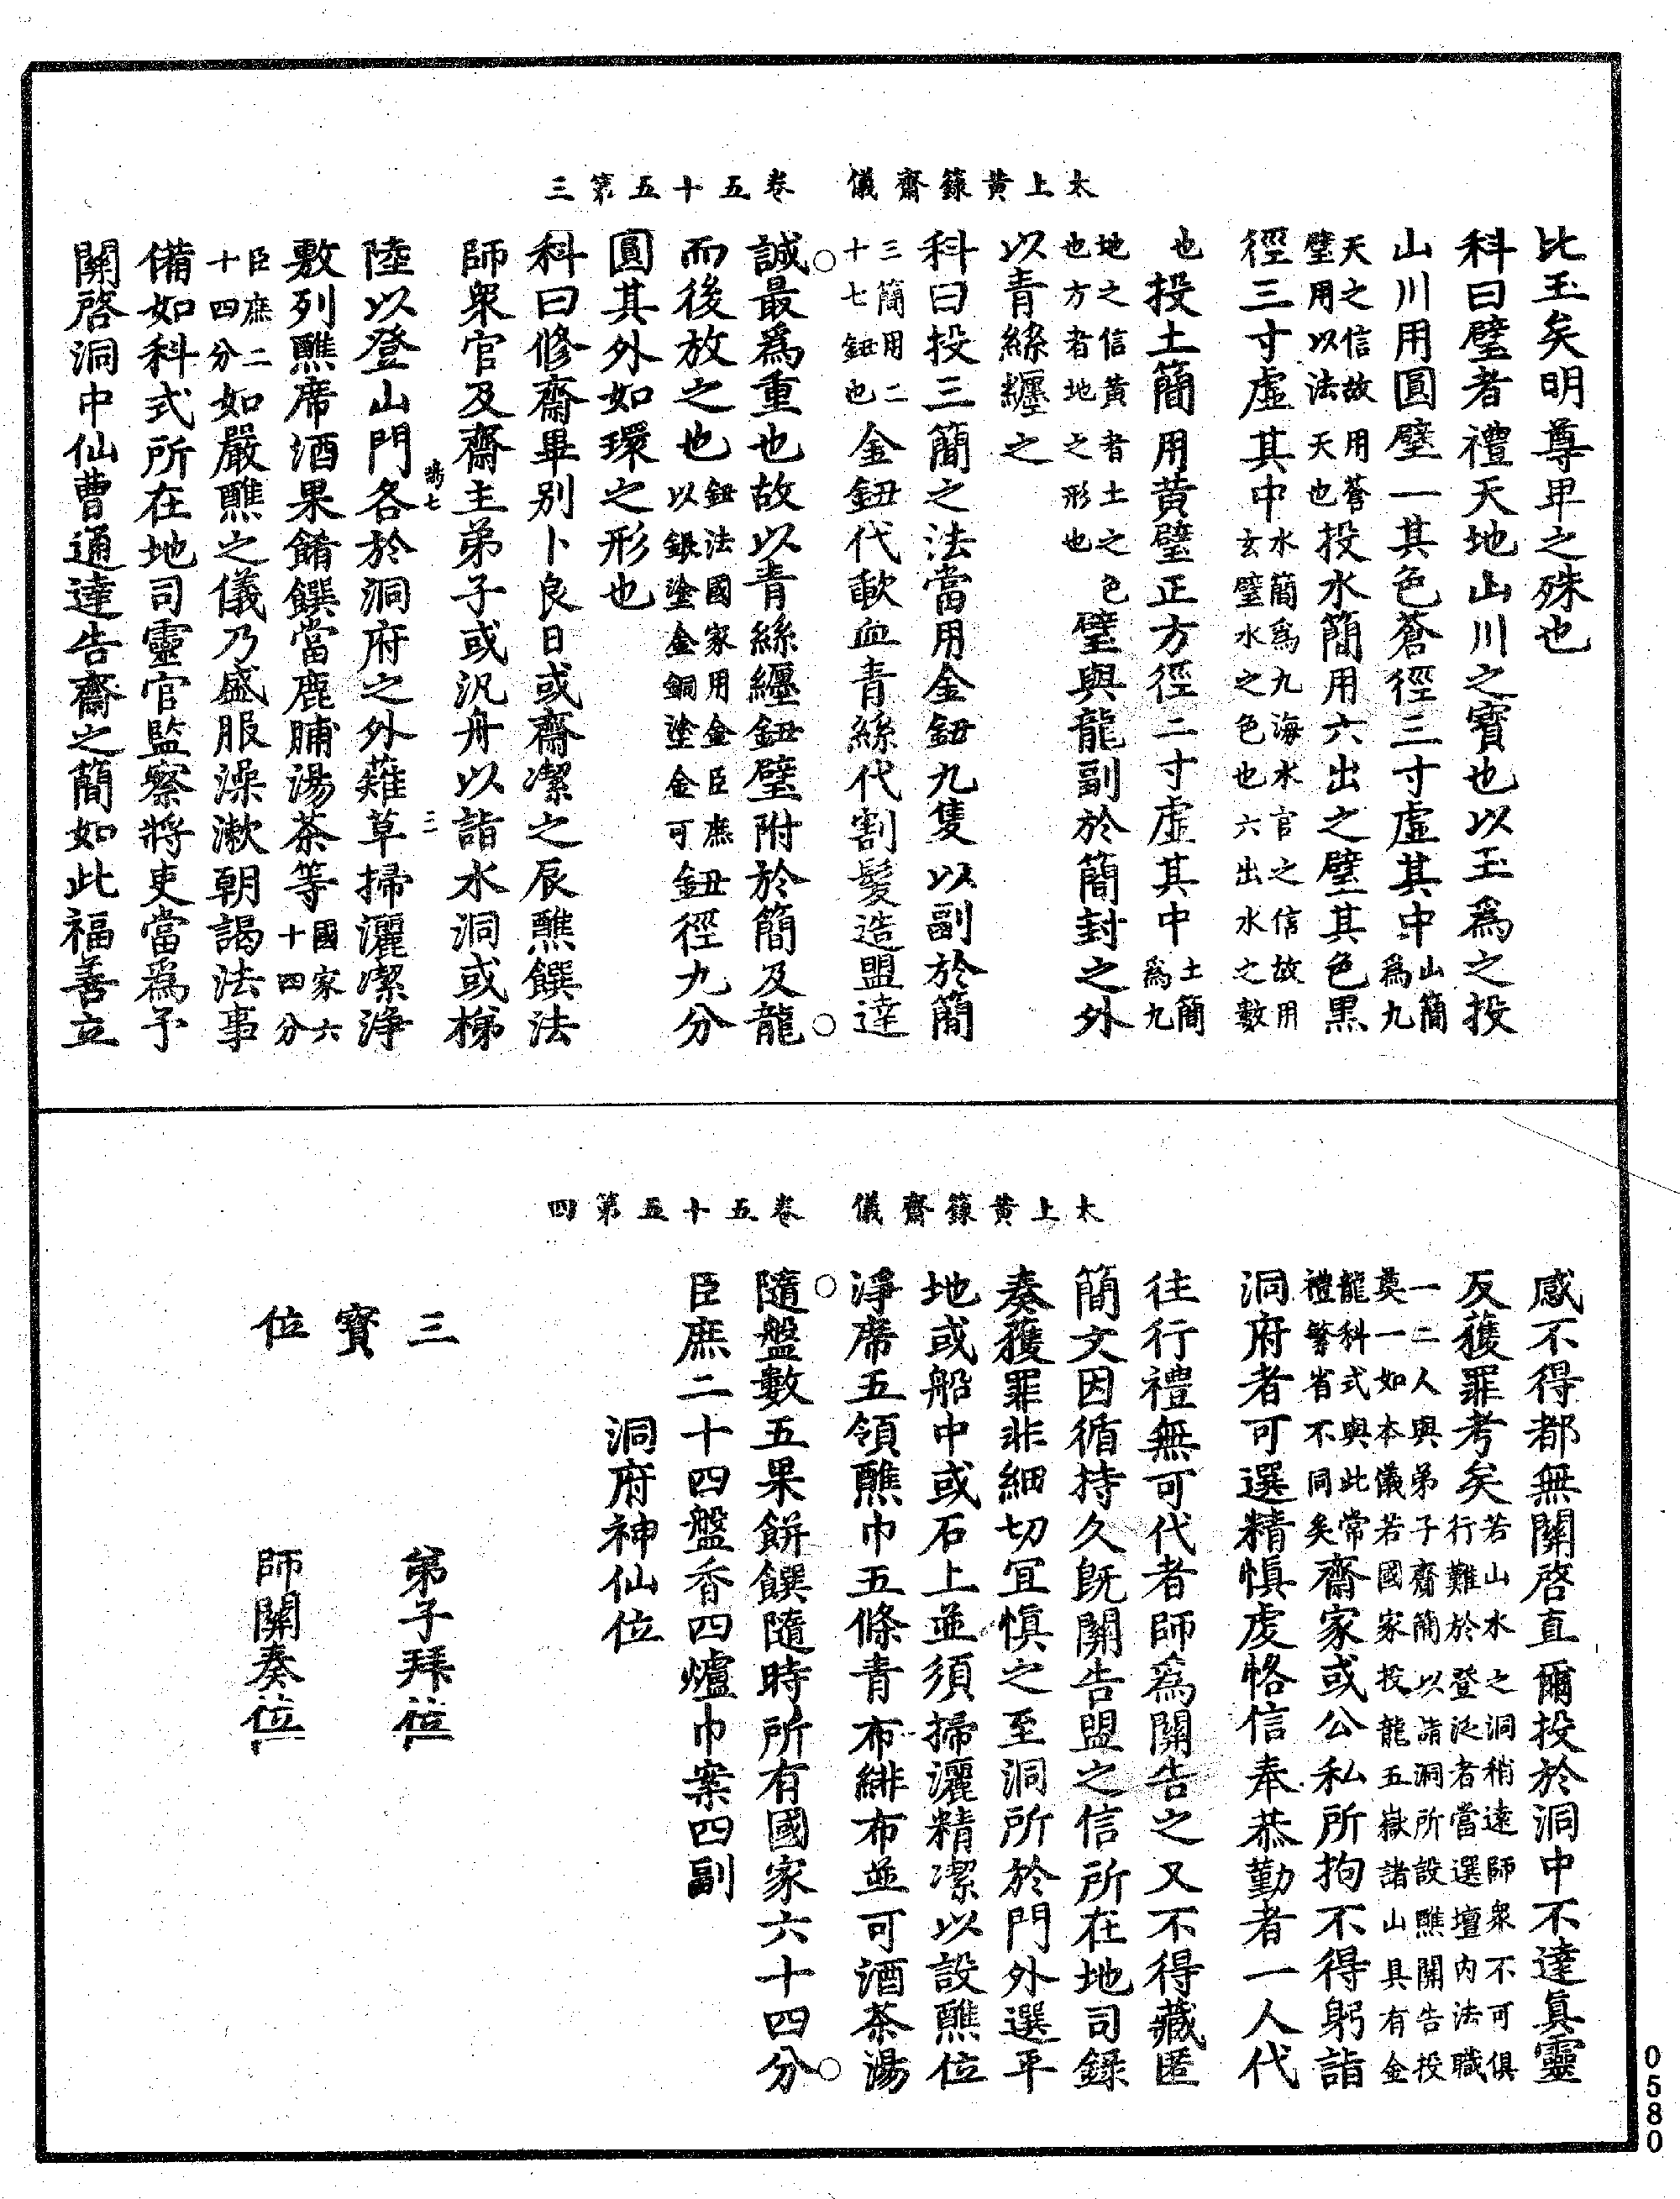 太上黃籙齋儀　卷五十五第三
比玉矣明尊卑之殊也
科曰璧者禮天地山川之寶也以玉爲之投
山川用圓璧一其色蒼徑三寸虛其中山簡爲九
天之信故用蒼璧用以法天也投水簡用六出之璧其色黑
徑三寸虛其中水簡爲九海水官之信故用玄璧水之色也六出水之數
也投土簡用黃璧正方徑二寸虛其中土簡爲九
地之信黃者土之色也方者地之形也璧與龍副於簡封之外
以青絲纏之
科曰投三簡之法當用金鈕九隻以副於簡
三簡用二十七鈕也金鈕代歃血青絲代割髮造盟達
誠最爲重也故以青絲纏鈕璧附於簡及龍
而後放之也鈕法國家用金臣庶以銀塗金銅塗金可鈕徑九分
圓其外如環之形也
科曰修齋畢別卜良日或齋潔之辰醮饌法
師衆官及齋主弟子或汎舟以詣水洞或梯
陸以登山門各於洞府之外薙草掃灑潔淨
敷列醮席酒果餚饌當鹿脯湯茶等國家六十四分
臣庶二十四分如嚴醮之儀乃盛服澡漱朝謁法事
備如科式所在地司靈官監察將吏當爲予
關啓洞中仙曹通達告齋之簡如此福善立
太上黃籙齋儀　卷五十五第四
感不得都無關啓直爾投於洞中不達眞靈
反獲罪考矣若山水之洞稍遠師衆不可俱行難於登泛者當選壇內法職
一二人與弟子齎簡以詣洞所設醮關告投奠一如本儀若國家投龍五嶽諸山具有金
龍科式與此常禮繁省不同矣齋家或公私所拘不得躬詣
洞府者可選精愼虔恪信奉恭勤者一人代
往行禮無可代者師爲關告之又不得藏匿
簡文因循持久旣關告盟之信所在地司錄
奏獲罪非細切宜愼之至洞所於門外選平
地或船中或石上並須掃灑精潔以設醮位
淨席五領醮巾五條青布緋布並可酒茶湯
隨盤數五果餅饌隨時所有國家六十四分
臣庶二十四盤香四爐巾案四副
洞府神仙位
三寶位
弟子拜位
師關奏位
0580